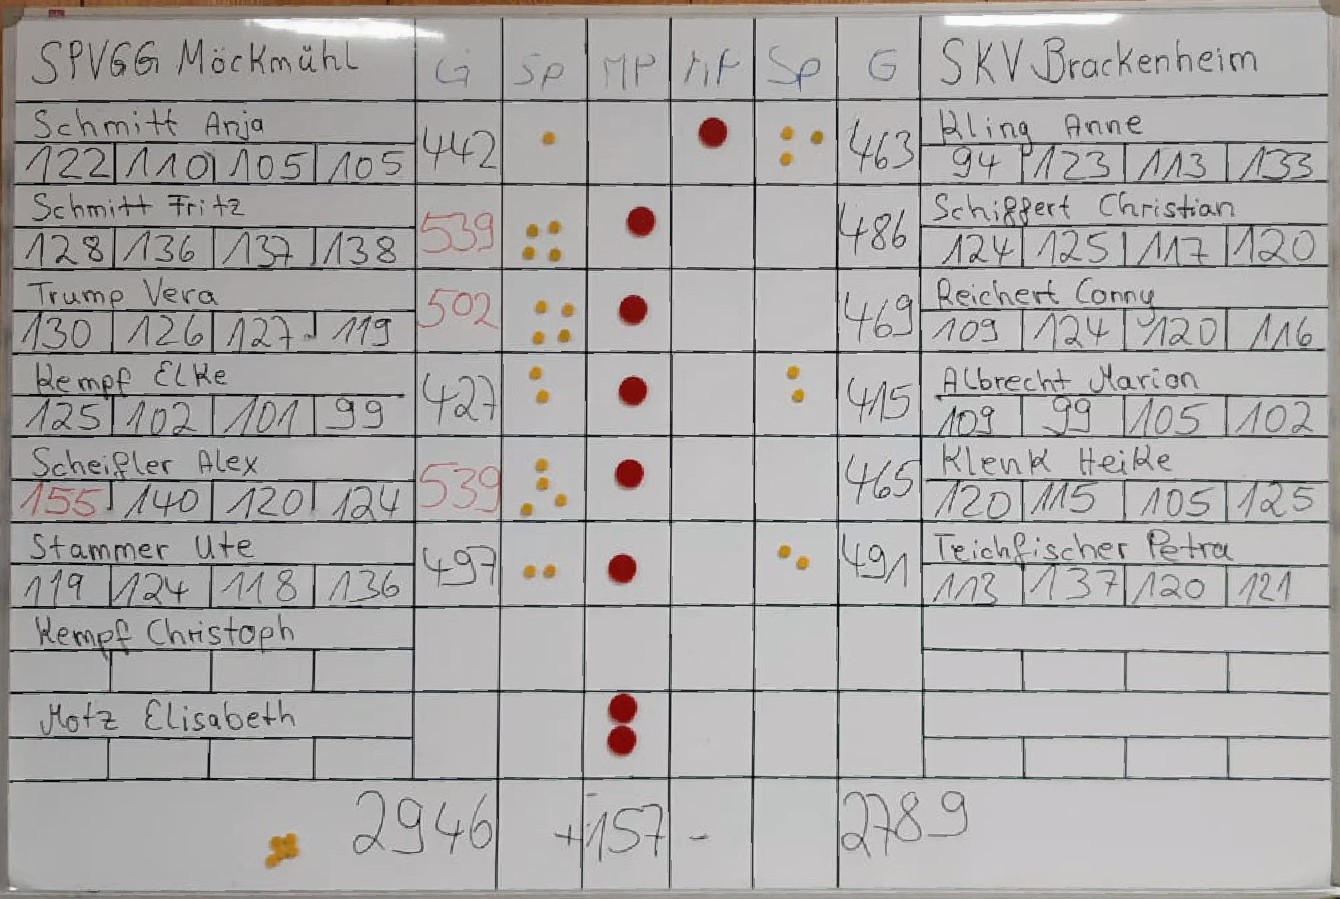 SPVGG Möckmühl G SP MP MP Sp G SKV Brackenheim
Schmitt Anja 442 463 Kling Anne
122 110 105 105 94 123 113 133
Schmitt Fritz 539 486 Schiffert Christian
128 136 137 138 124 125 117 120
Trump Vera 502 469 Reichert Conny
130 126 127 119 109 124 120 116
Kempf Elke 427 415 Albrecht Marion
125 102 101 99 109 99 105 102
Scheifler Alex 539 465 Klenk Heike
155 140 120 124 120 115 105 125
Stammer Ute 497 491 Teichfischer Petra
119 124 118 136 113 137 120 121
Kempf Christoph
Motz Elisabeth
2946 +157 - 2789